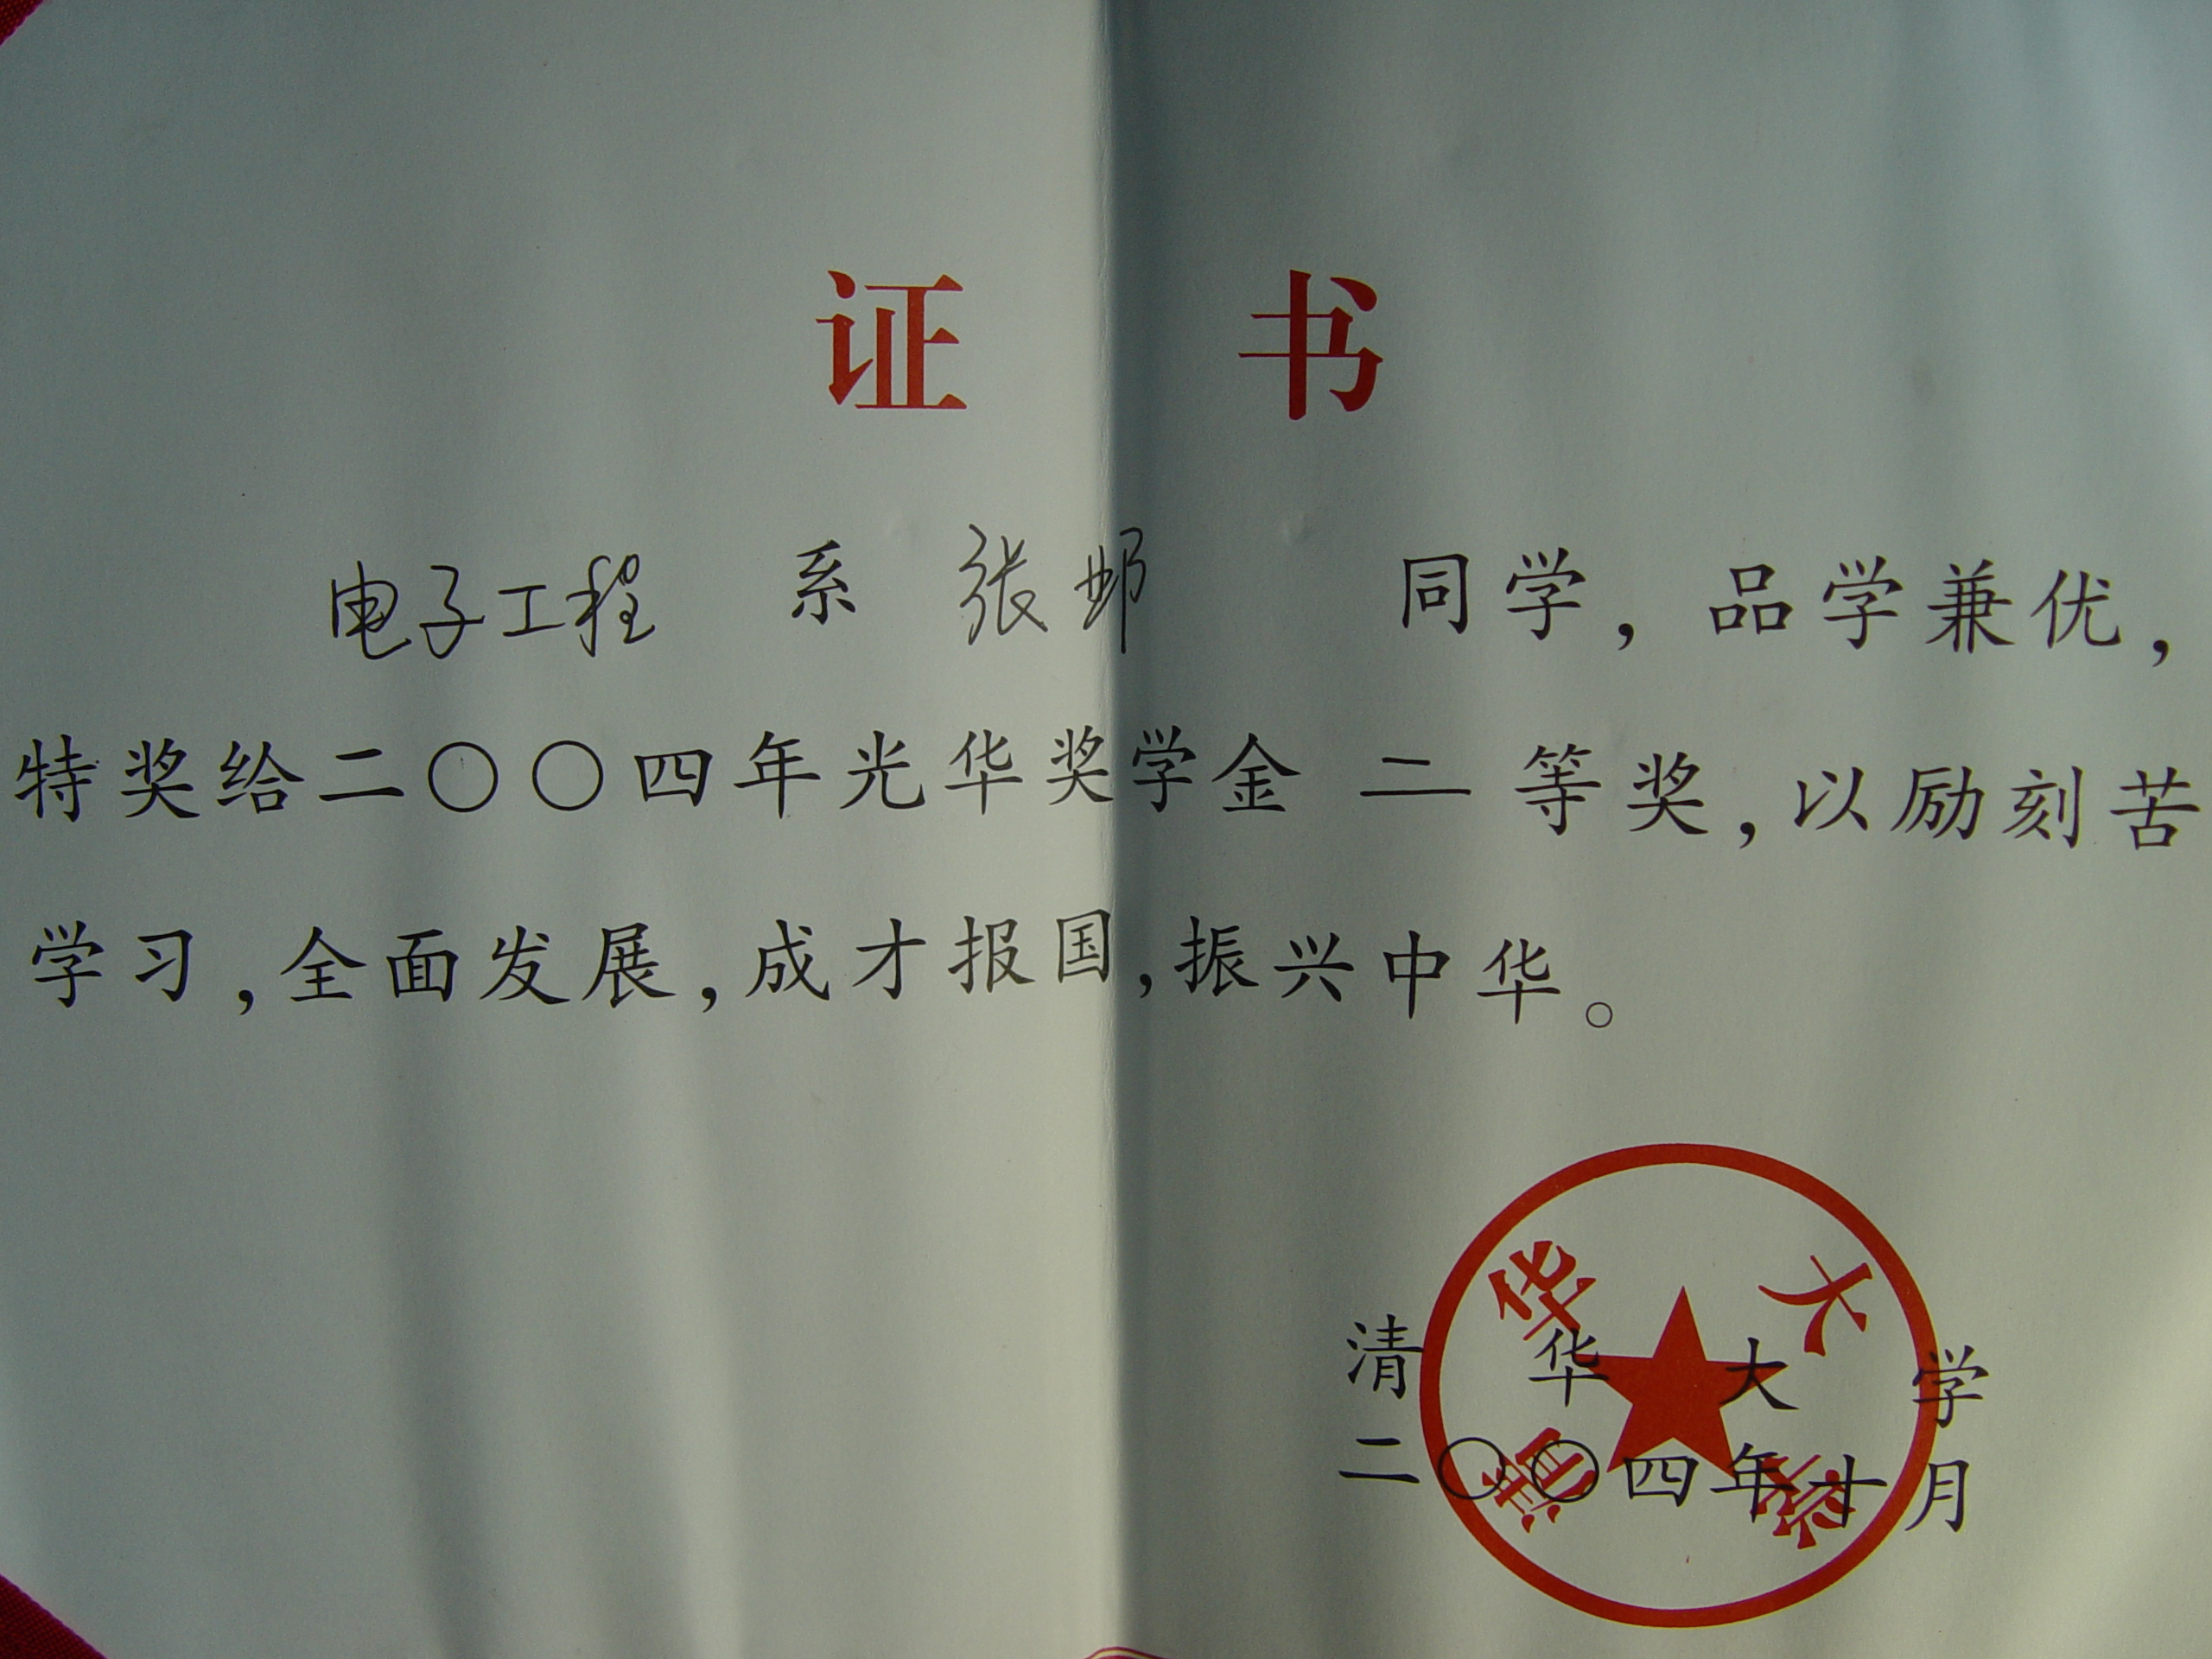 证书
电子工程 系 张邺 同学，品学兼优，
特奖给二〇〇四年光华奖学金 二 等奖，以励刻苦
学习，全面发展，成才报国，振兴中华。
清华大学
清华大学
二〇〇四年十月